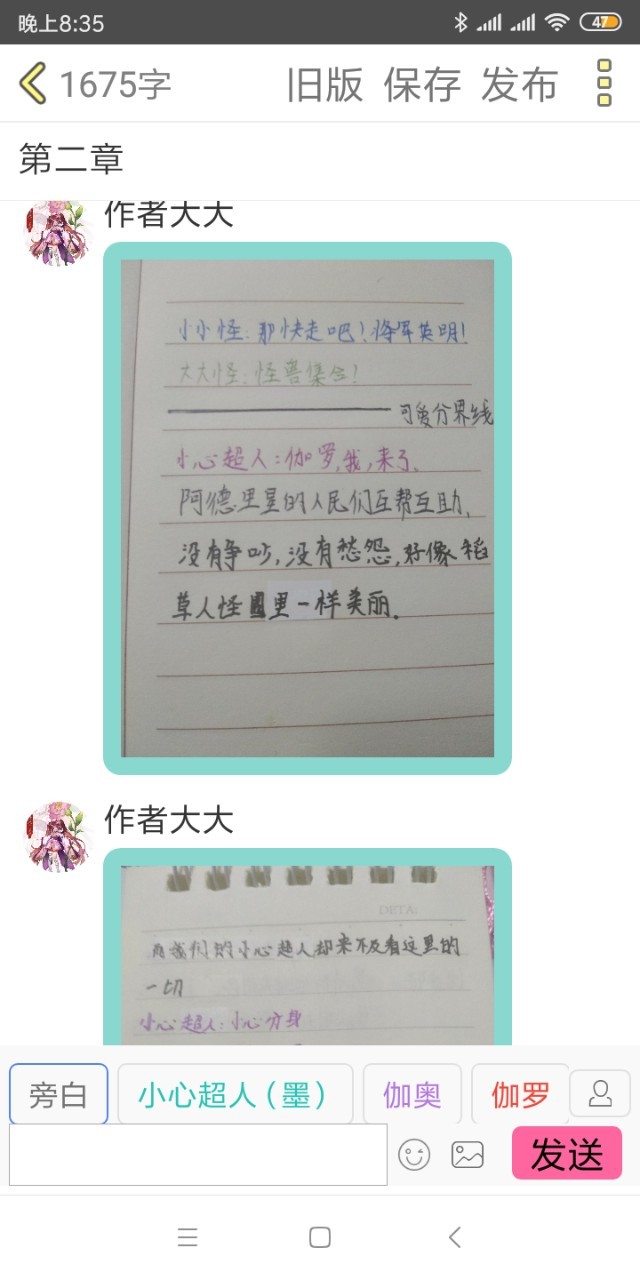 晚上8:35
47
1675字
旧版 保存 发布
第二章
作者大大
小小怪:那快走吧!将军英明!
大大怪:怪兽集合!
可爱分界线
小心超人:伽罗,我,来了.
阿德里星的人民们互帮互助,
没有争吵,没有愁怨,好像稻
草人怪圈里一样美丽.
作者大大
DETA:
而我们的小心超人却来不及看这里的
一切
小心超人:小心分身
旁白
小心超人(墨)
伽奥
伽罗
发送